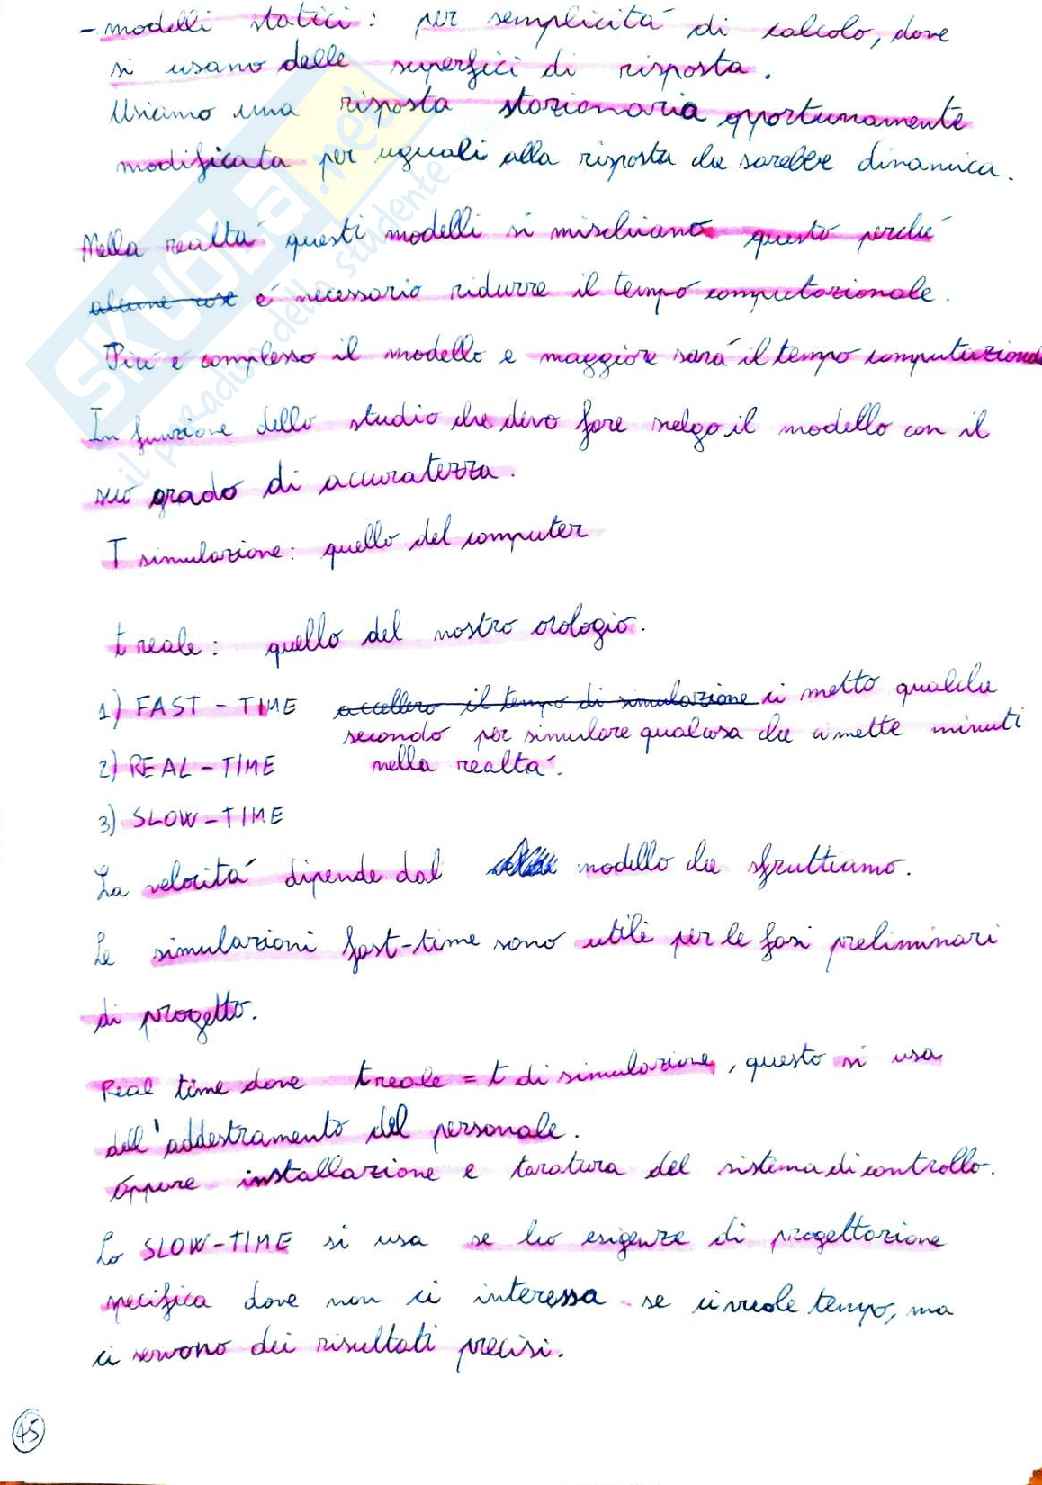 - modelli statici: per semplicità di calcolo, dove
si usano delle superfici di risposta.
Usiamo una risposta stazionaria opportunamente
modificata per uguali alla risposta che sarebbe dinamica.
Nella realtà questi modelli si mischiano questo perché
alcune cose è necessario ridurre il tempo computazionale.
Più è complesso il modello e maggiore sarà il tempo computazionale
In funzione dello studio che devo fare scelgo il modello con il
suo grado di accuratezza.
T simulazione: quello del computer
t reale: quello del nostro orologio.
1) FAST - TIME accellero il tempo di simulazione ci metto qualche
secondo per simulare qualcosa che ci mette minuti
2) REAL - TIME nella realtà.
3) SLOW - TIME
La velocità dipende dal modello che sfruttiamo.
Le simulazioni fast-time sono utili per le fasi preliminari
di progetto.
Real time dove t reale = t di simulazione, questo si usa
dell'addestramento del personale.
oppure installazione e taratura del sistema di controllo.
Lo SLOW-TIME si usa se ho esigenze di progettazione
specifica dove non ci interessa se ci vuole tempo, ma
ci servono dei risultati precisi.
45
SKUOLA.net
il paradiso dello studente